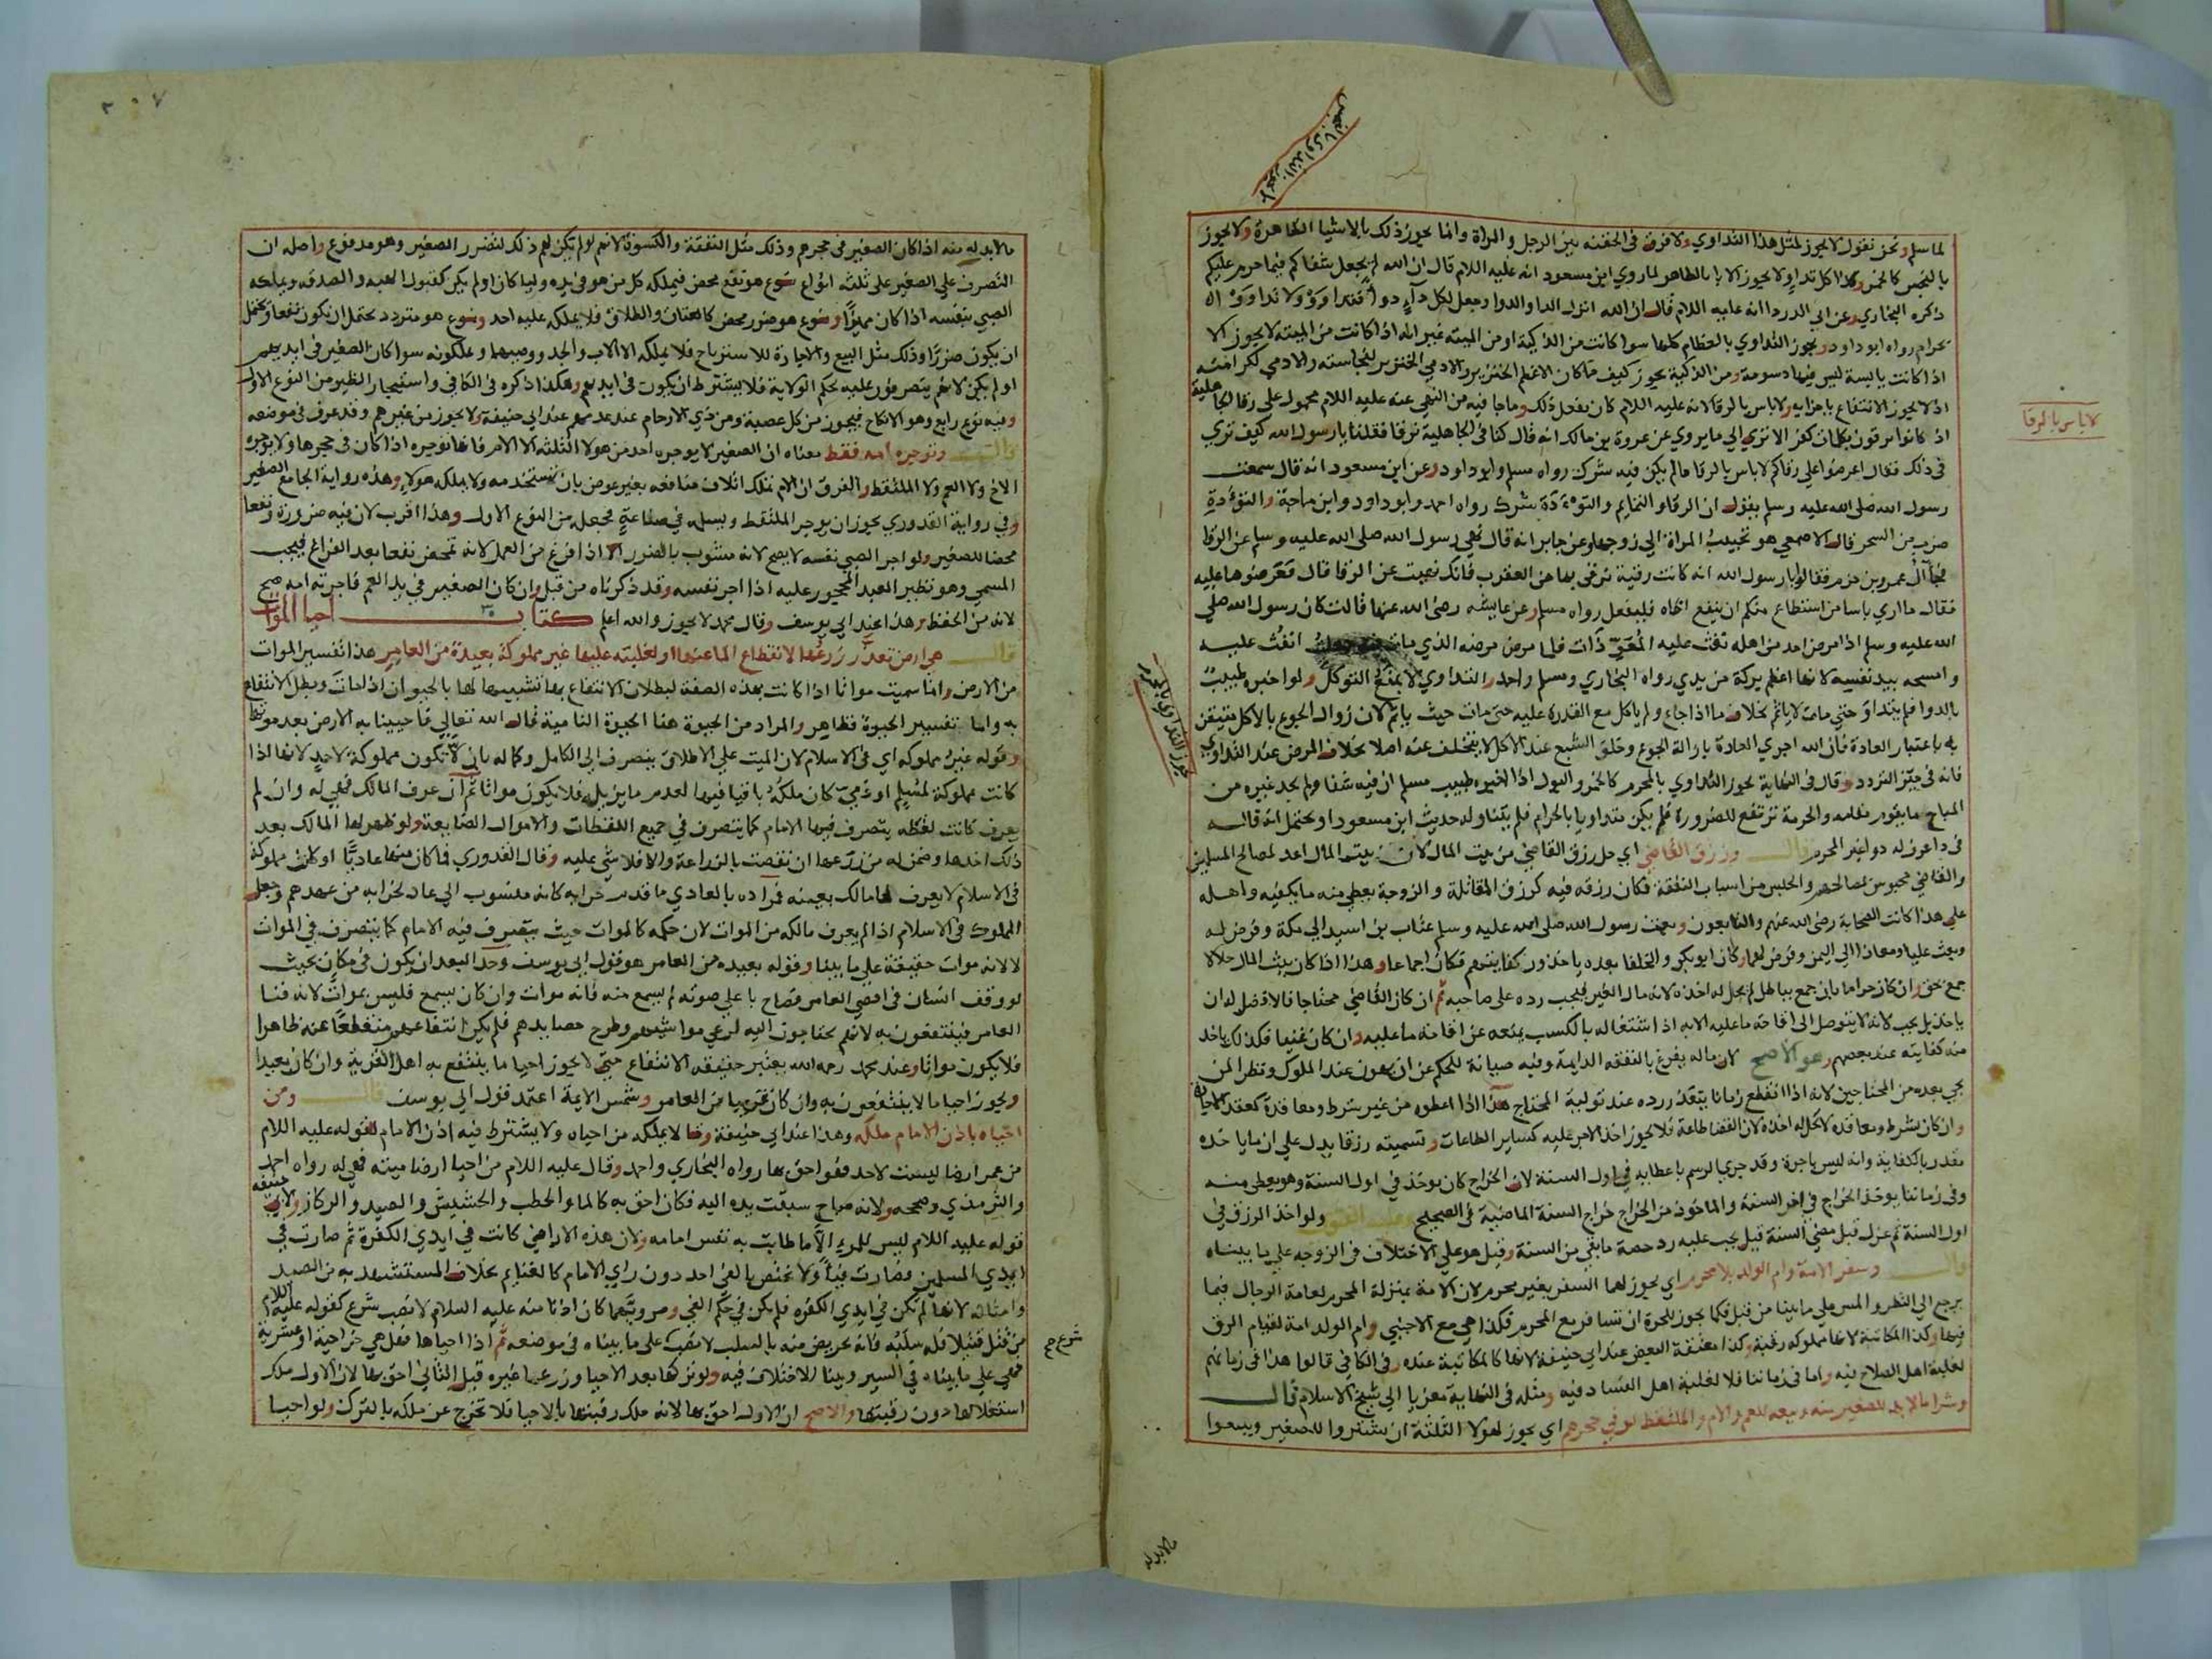 لا يجوز التداوي بالنجس
لما سلم ونحن نقول لا يجوز لمثل هذا التداوي ولا فرق في الحقنه بين الرجل والمراة وانما يجوز ذلك بالاشيا الطاهرة ولا يجوز
بالنجس كالخمر وكذا كل تداو لا يجوز الا بالطاهر لما روي ابن مسعود انه عليه اللام قال ان الله لم يجعل شفاكم فيما حرم عليكم
ذكره البخاري وعن ابي الدردا انه عليه اللام قال ان الله انزل الدا والدوا وجعل لكل داء دوا فتداووا ولا تداووا
بحرام رواه ابو داود ويجوز التداوي بالعظام كلها سوا كانت من الذكية او من الميته غير انه اذا كانت من الميته لا يجوز الا
اذا كانت يابسة ليس فيها دسومة ومن الذكية يجوز كيف ما كان الا عظم الخنزير والادمي الخنزير لنجاسته والادمي لكرامته
اذ لا يجوز الانتفاع باجزايه ولا باس بالرقا لانه عليه اللام كان يفعل ذلك وما جا فيه من النهي عنه عليه اللام محمول على رقا الجاهلية
اذ كانوا يرقون بكلمات كفر الا تري الي ما يروي عن عروة بن مالك انه قال كنا في الجاهلية نرقا فقلنا يا رسول الله كيف تري
في ذلك فقال اعرضوا علي رقاكم لا باس بالرقا مالم يكن فيه شرك رواه مسلم وابو داود وعن ابن مسعود انه قال سمعت
رسول الله صلى الله عليه وسلم يقول ان الرقا والتمايم والتولة شرك رواه احمد وابو داود وابن ماجة والتولة
ضرب من السحر قال الاصمعي هو تحبيب المراة الي زوجها وعن جابر انه قال نهي رسول الله صلى الله عليه وسلم عن الرقا
فجا آل عمرو بن حزم فقالوا يا رسول الله انه كانت رقية نرقي بها من العقرب فانك نهيت عن الرقا قال فعرضوها عليه
فقال ما اري باسا من استطاع منكم ان ينفع اخاه فليفعل رواه مسلم وعن عايشه رضى الله عنها قالت كان رسول الله صلى
الله عليه وسلم اذا مرض احد من اهله نفث عليه المعوذات فلما مرض مرضه الذي مات انفث عليه
وامسحه بيد نفسه لانها اعظم بركة من يدي رواه البخاري ومسلم واحمد والتداوي لا يمنع التوكل ولو اخبره طبيب
بالدوا فلم يتداو حتي مات لا ياثم بخلاف ما اذا جاع ولم ياكل مع القدرة عليه حتى مات حيث ياثم لان زوال الجوع بالاكل متيقن
به باعتبار العادة فان الله اجري العادة بازالة الجوع وخلق الشبع عند الاكل لا يتخلف عنه اصلا بخلاف المرض عند التداوي
فانه في حيز التردد وقال في النهاية يجوز التداوي بالمحرم كالخمر والبول اذا اخبره طبيب مسلم ان فيه شفا ولم يجد غيره من
المباح ما يقوم مقامه والحرمة ترتفع للضرورة فلم يكن متداويا بالحرام فلم يتناوله حديث ابن مسعود او يحتمل انه قاله
في داعرف له دوا غير المحرم قال ورزق القاضي اي حل رزق القاضي من بيت المال لان بيت المال اعد لمصالح المسلمين
والقاضي محبوس لمصالحهم والحبس من اسباب النفقة فكان رزقه فيه كرزق المقاتلة والزوجة يعطي منه ما يكفيه واهله
علي هذا كانت الصحابة رضى الله عنهم والتابعون وبعث رسول الله صلى الله عليه وسلم عتاب بن اسيد الي مكة وفرض له
وبعث عليا ومعاذا الي اليمن وفرض لهما وكان ابو بكر والخلفا بعده ياخذون كفايتهم فكان اجماعا وهذا اذا كان بيت المال حلالا
جمع بحق وان كان حراما بان جمع بباطل لم يحل له اخذه لانه مال الغير فيجب رده على صاحبه ثم ان كان القاضي محتاجا فالافضل له ان
ياخذ بل يجب لانه لا يتوصل الى اقامة ما عليه الا به اذ اشتغاله بالكسب يمنعه عن اقامة ما عليه وان كان غنيا فكذلك ياخذ
منه كفايته عند بعضهم وهو الاصح لان ماله يفرغ بالنفقه الدايمة وفيه صيانة للحكم عن ان يهون عند الملوك ونظرا لمن
يجي بعده من المحتاجين لانه اذا انقطع زمانا يتعذر رده عند تولية المحتاج هذا اذا اعطوه من غير شرط ومعاقدة كعقد الاجارة
وان كان بشرط ومعاقده لا يحل له اخذه لان القضا طاعة فلا يجوز اخذ الاجر عليه كساير الطاعات وتسميته رزقا يدل علي ان ما ياخذه
مقدر بالكفاية وانه ليس باجرة وقد جري الرسم باعطايه في اول السنة لان الخراج كان يوخذ في اول السنة وهو يعطى منه
وفي زماننا يوخذ الخراج في اخر السنة والماخوذ من الخراج خراج السنة الماضية في الصحيح وعليه الفتوي ولو اخذ الرزق في
اول السنة ثم عزل قبل مضي السنة قيل يجب عليه رد حصة ما بقي من السنة وقيل هو علي الاختلاف في الزوجه علي ما بيناه
قال وسفر الامة وام الولد بلا محرم اي يجوز لهما السفر بغير محرم لان الامة بمنزلة المحرم لعامة الرجال فيما
يرجع الي النظر والمس علي ما بينا من قبل فكما يجوز للحرة ان تسافر مع المحرم فكذا هي مع الاجنبي وام الولد امة لقيام الرق
فيها وكذا المكاتبة لانها مملوكه رقبة وكذا معتقة البعض عند ابي حنيفة لانها كالمكاتبة عنده وفي الكافي قالوا هذا في زمانهم
لغلبة اهل الصلاح فيه واما في زماننا فلا لغلبة اهل الفساد فيه ومثله في النهاية معزيا الي شيخ الاسلام قال
وشرا ما لا بد للصغير منه وبيعه للعم والام والملتقط لو في حجرهم اي يجوز لهولا الثلثة ان يشتروا للصغير ويبيعوا
لا باس بالرقا
مالابدله
٢٠٧
مالابدله منه اذا كان الصغير في حجرهم وذلك مثل النفقة والكسوة لانهم لو لم يكن لهم ذلك لتضرر الصغير وهو مدفوع واصله ان
التصرف علي الصغير على ثلثه انواع نوع هو نفع محض فيملكه كل من هو في يده وليا كان او لم يكن كقبول الهبه والصدقه ويملكه
الصبي بنفسه اذا كان مميزا ونوع هو ضرر محض كالعتاق والطلاق فلا يملكه عليه احد ونوع هو متردد يحتمل ان يكون نفعا ويحتمل
ان يكون ضررا وذلك مثل البيع والاجارة للاسترباح فلا يملكه الا الاب والجد ووصيهما ويملكونه سوا كان الصغير في ايديهم
او لم يكن لانهم يتصرفون عليه بحكم الولاية فلا يشترط ان يكون في ايديهم وهكذا ذكره في الكافي واستيجار الظير من النوع الاول
وفيه نوع رابع وهو الانكاح فيجوز من كل عصبة ومن ذوي الارحام عند عدمهم عند ابي حنيفة ولا يجوز من غيرهم وقد عرف في موضعه
قال وتوجره امه فقط معناه ان الصغير لا يوجره احد من هولا الثلثة الا الام فانها توجره اذا كان في حجرها ولا يوجره
الاخ ولا العم ولا الملتقط والفرق ان الام تملك اتلاف منافعه بغير عوض بان تستخدمه ولا يملكه هولاء وهذه رواية الجامع الصغير
وفي رواية القدوري يجوز ان يوجر الملتقط ويسلمه في صناعة فجعله من النوع الاول وهذا اقرب لان فيه ضرورة ونفعا
محضا للصغير ولو اجر الصبي نفسه لا يصح لانه مشوب بالضرر الا اذا فرغ من العمل لانه تمحض نفعا بعد الفراغ فيجب
المسمي وهو نظير العبد المحجور عليه اذا اجر نفسه وقد ذكرناه من قبل وان كان الصغير في يد العم فاجرته امه صح
لانه من الحفظ وهذا عند ابي يوسف وقال محمد لا يجوز والله اعلم كتاب احيا الموات
قال هي ارض تعذر زرعها لانقطاع الما عنها او لغلبته عليها غير مملوكة بعيدة من العامر هذا تفسير الموات
من الارض وانما سميت مواتا اذا كانت بهذه الصفة لبطلان الانتفاع بها تشبيها لها بالحيوان اذا مات وبطل الانتفاع
به واما تفسير الحيوة فظاهر والمراد من الحيوة هنا الحيوة النامية قال الله تعالي فاحيينا به الارض بعد موتها
وقوله غير مملوكه اي في الاسلام لان الميت علي الاطلاق ينصرف الي الكامل وكماله بان لا تكون مملوكة لاحد لانها اذا
كانت مملوكة لمسلم او ذمي كان ملكه باقيا فيها لعدم ما يزيله فلا يكون مواتا ثم ان عرف المالك فهي له وان لم
يعرف كانت لقطه يتصرف فيها الامام كما يتصرف في جميع اللقطات والاموال الضايعة ولو ظهر لها المالك بعد
ذلك اخذها وضمن له من زرعها ان نقصت بالزراعة والا فلا شي عليه وقال القدوري فما كان منها عاديا او كان مملوكا
في الاسلام لا يعرف لها مالك بعينه فمراده بالعادي ما قدم خرابه كانه منسوب الي عاد لخرابه من عهدهم وجعل
المملوك في الاسلام اذا لم يعرف مالكه من الموات لان حكمه كالموات حيث يتصرف فيه الامام كما يتصرف في الموات
لا لانه موات حقيقة علي ما بينا وقوله بعيده من العامر هو قول ابي يوسف وحد البعد ان يكون في مكان بحيث
لو وقف انسان في اقصي العامر فصاح با علي صوته لم يسمع منه فانه موات وان كان يسمع فليس بموات لانه فنا
العامر فينتفعون به لانهم يحتاجون اليه لرعي مواشيهم وطرح حصايدهم فلم يكن انتفاعهم منقطعا عنه ظاهرا
فلا يكون مواتا وعند محمد رحمه الله يعتبر حقيقه الانتفاع حتي لا يجوز احيا ما ينتفع به اهل القرية وان كان بعيدا
ويجوز احيا ما لا ينتفعون به وان كان قريبا من العامر وشمس الايمة اعتمد قول ابي يوسف قال ومن
احياه باذن الامام ملكه وهذا عند ابي حنيفة وقالا يملكه من احياه ولا يشترط فيه اذن الامام لقوله عليه اللام
من عمر ارضا ليست لاحد فهو احق بها رواه البخاري واحمد وقال عليه اللام من احيا ارضا ميته فهي له رواه احمد
والترمذي وصححه ولانه مباح سبقت يده اليه فكان احق به كالما والحطب والحشيش والصيد والركاز ولابي حنيفه
قوله عليه اللام ليس للمرء الا ما طابت به نفس امامه ولان هذه الاراضي كانت في ايدي الكفرة ثم صارت في
ايدي المسلمين فصارت فيئا ولا يختص بالفي احد دون راي الامام كالغنايم بخلاف المستشهد به من الصيد
وامثاله لانها لم تكن في ايدي الكفره فلم يكن في حكم الفي ومرويهما كان اذنا منه عليه السلام لا نصب شرع كقوله عليه اللام
من قتل قتيلا فله سلبه فانه تحريض منه بالسلب لا نصب على ما بيناه في موضعه ثم اذا احياها فهل هي خراجية او عشرية
فهي علي ما بيناه في السير وبينا الاختلاف فيه ولو تركها بعد الاحيا وزرعها غيره قيل الثاني احق بها لان الاول ملك
استغلالها دون رقبتها والاصح ان الاول احق بها لانه ملك رقبتها بالاحيا فلا تخرج عن ملكه بالترك ولو احيا
شرع صح